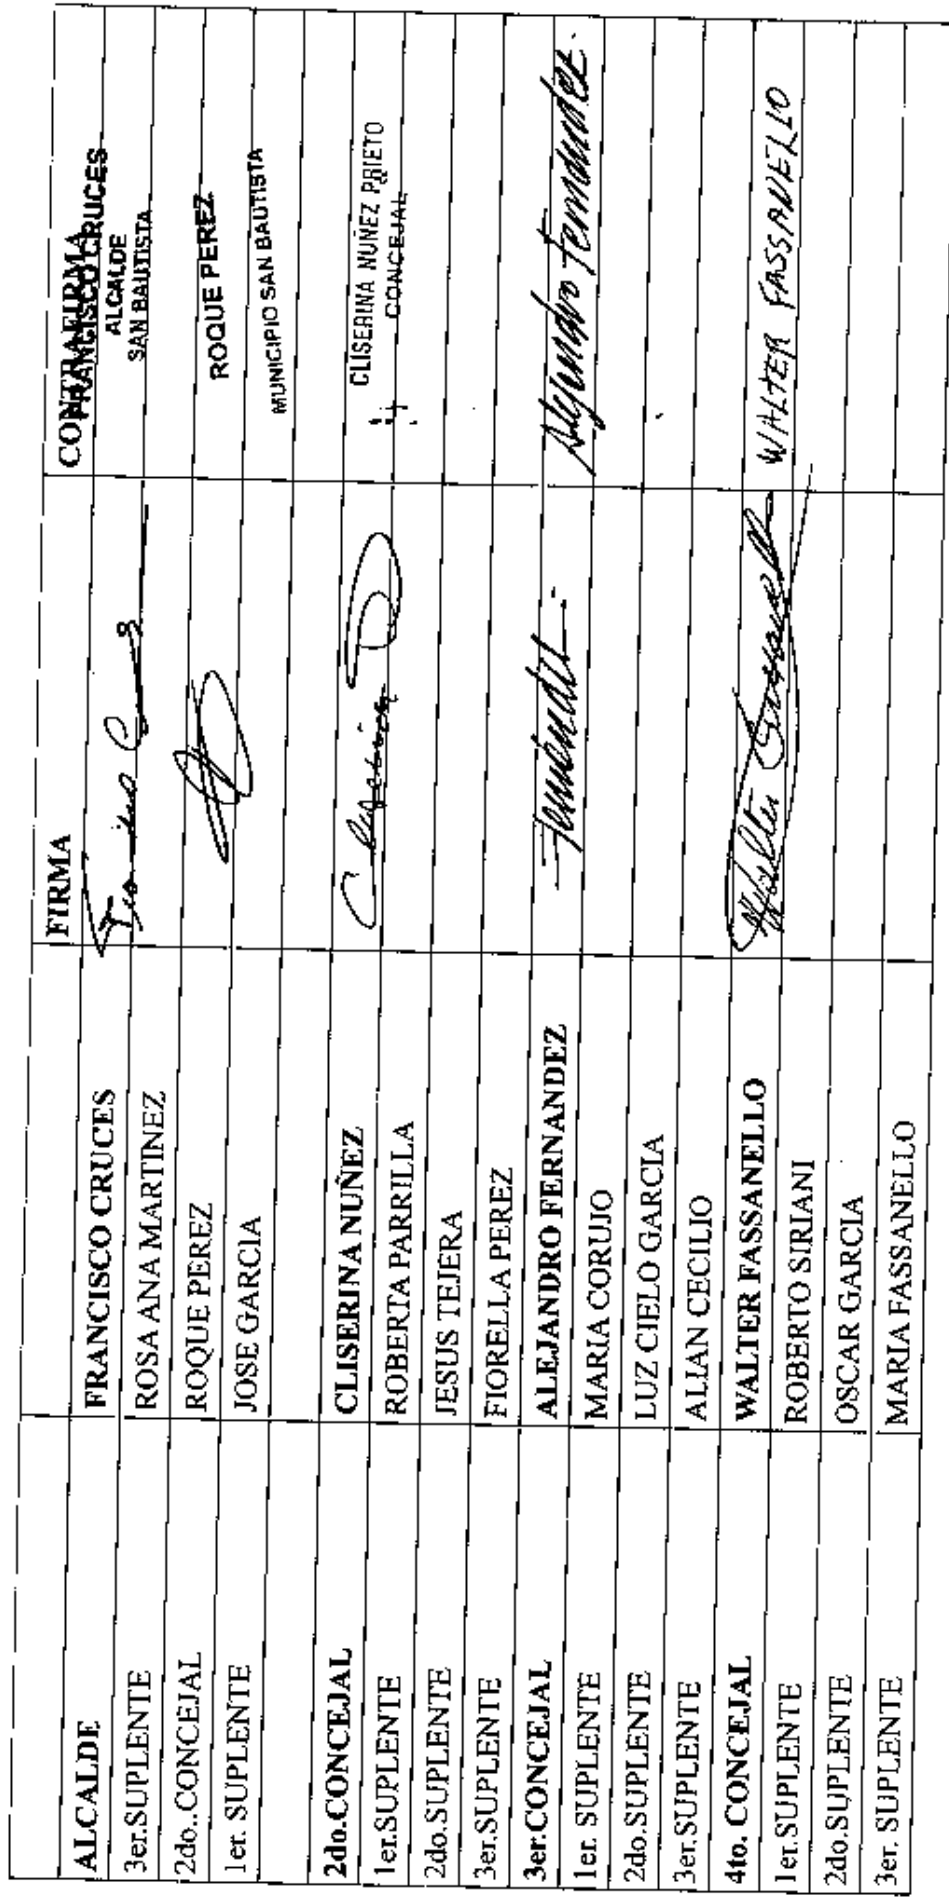 FIRMA CONTRAFIRMA
ALCALDE FRANCISCO CRUCES FRANCISCO CRUCES
ALCALDE
SAN BAUTISTA
3er.SUPLENTE ROSA ANA MARTINEZ
2do..CONCEJAL ROQUE PEREZ ROQUE PEREZ
1er. SUPLENTE JOSE GARCIA MUNICIPIO SAN BAUTISTA
2do.CONCEJAL CLISERINA NUÑEZ CLISERINA NUÑEZ PRIETO
CONCEJAL
1er.SUPLENTE ROBERTA PARRILLA
2do.SUPLENTE JESUS TEJERA
3er.SUPLENTE FIORELLA PEREZ
3er.CONCEJAL ALEJANDRO FERNANDEZ Fernández Alejandro Fernandez
1er. SUPLENTE MARIA CORUJO
2do.SUPLENTE LUZ CIELO GARCIA
3er.SUPLENTE ALIAN CECILIO
4to. CONCEJAL WALTER FASSANELLO Walter Fassanello WALTER FASSANELLO
1er.SUPLENTE ROBERTO SIRIANI
2do.SUPLENTE OSCAR GARCIA
3er. SUPLENTE MARIA FASSANELLO